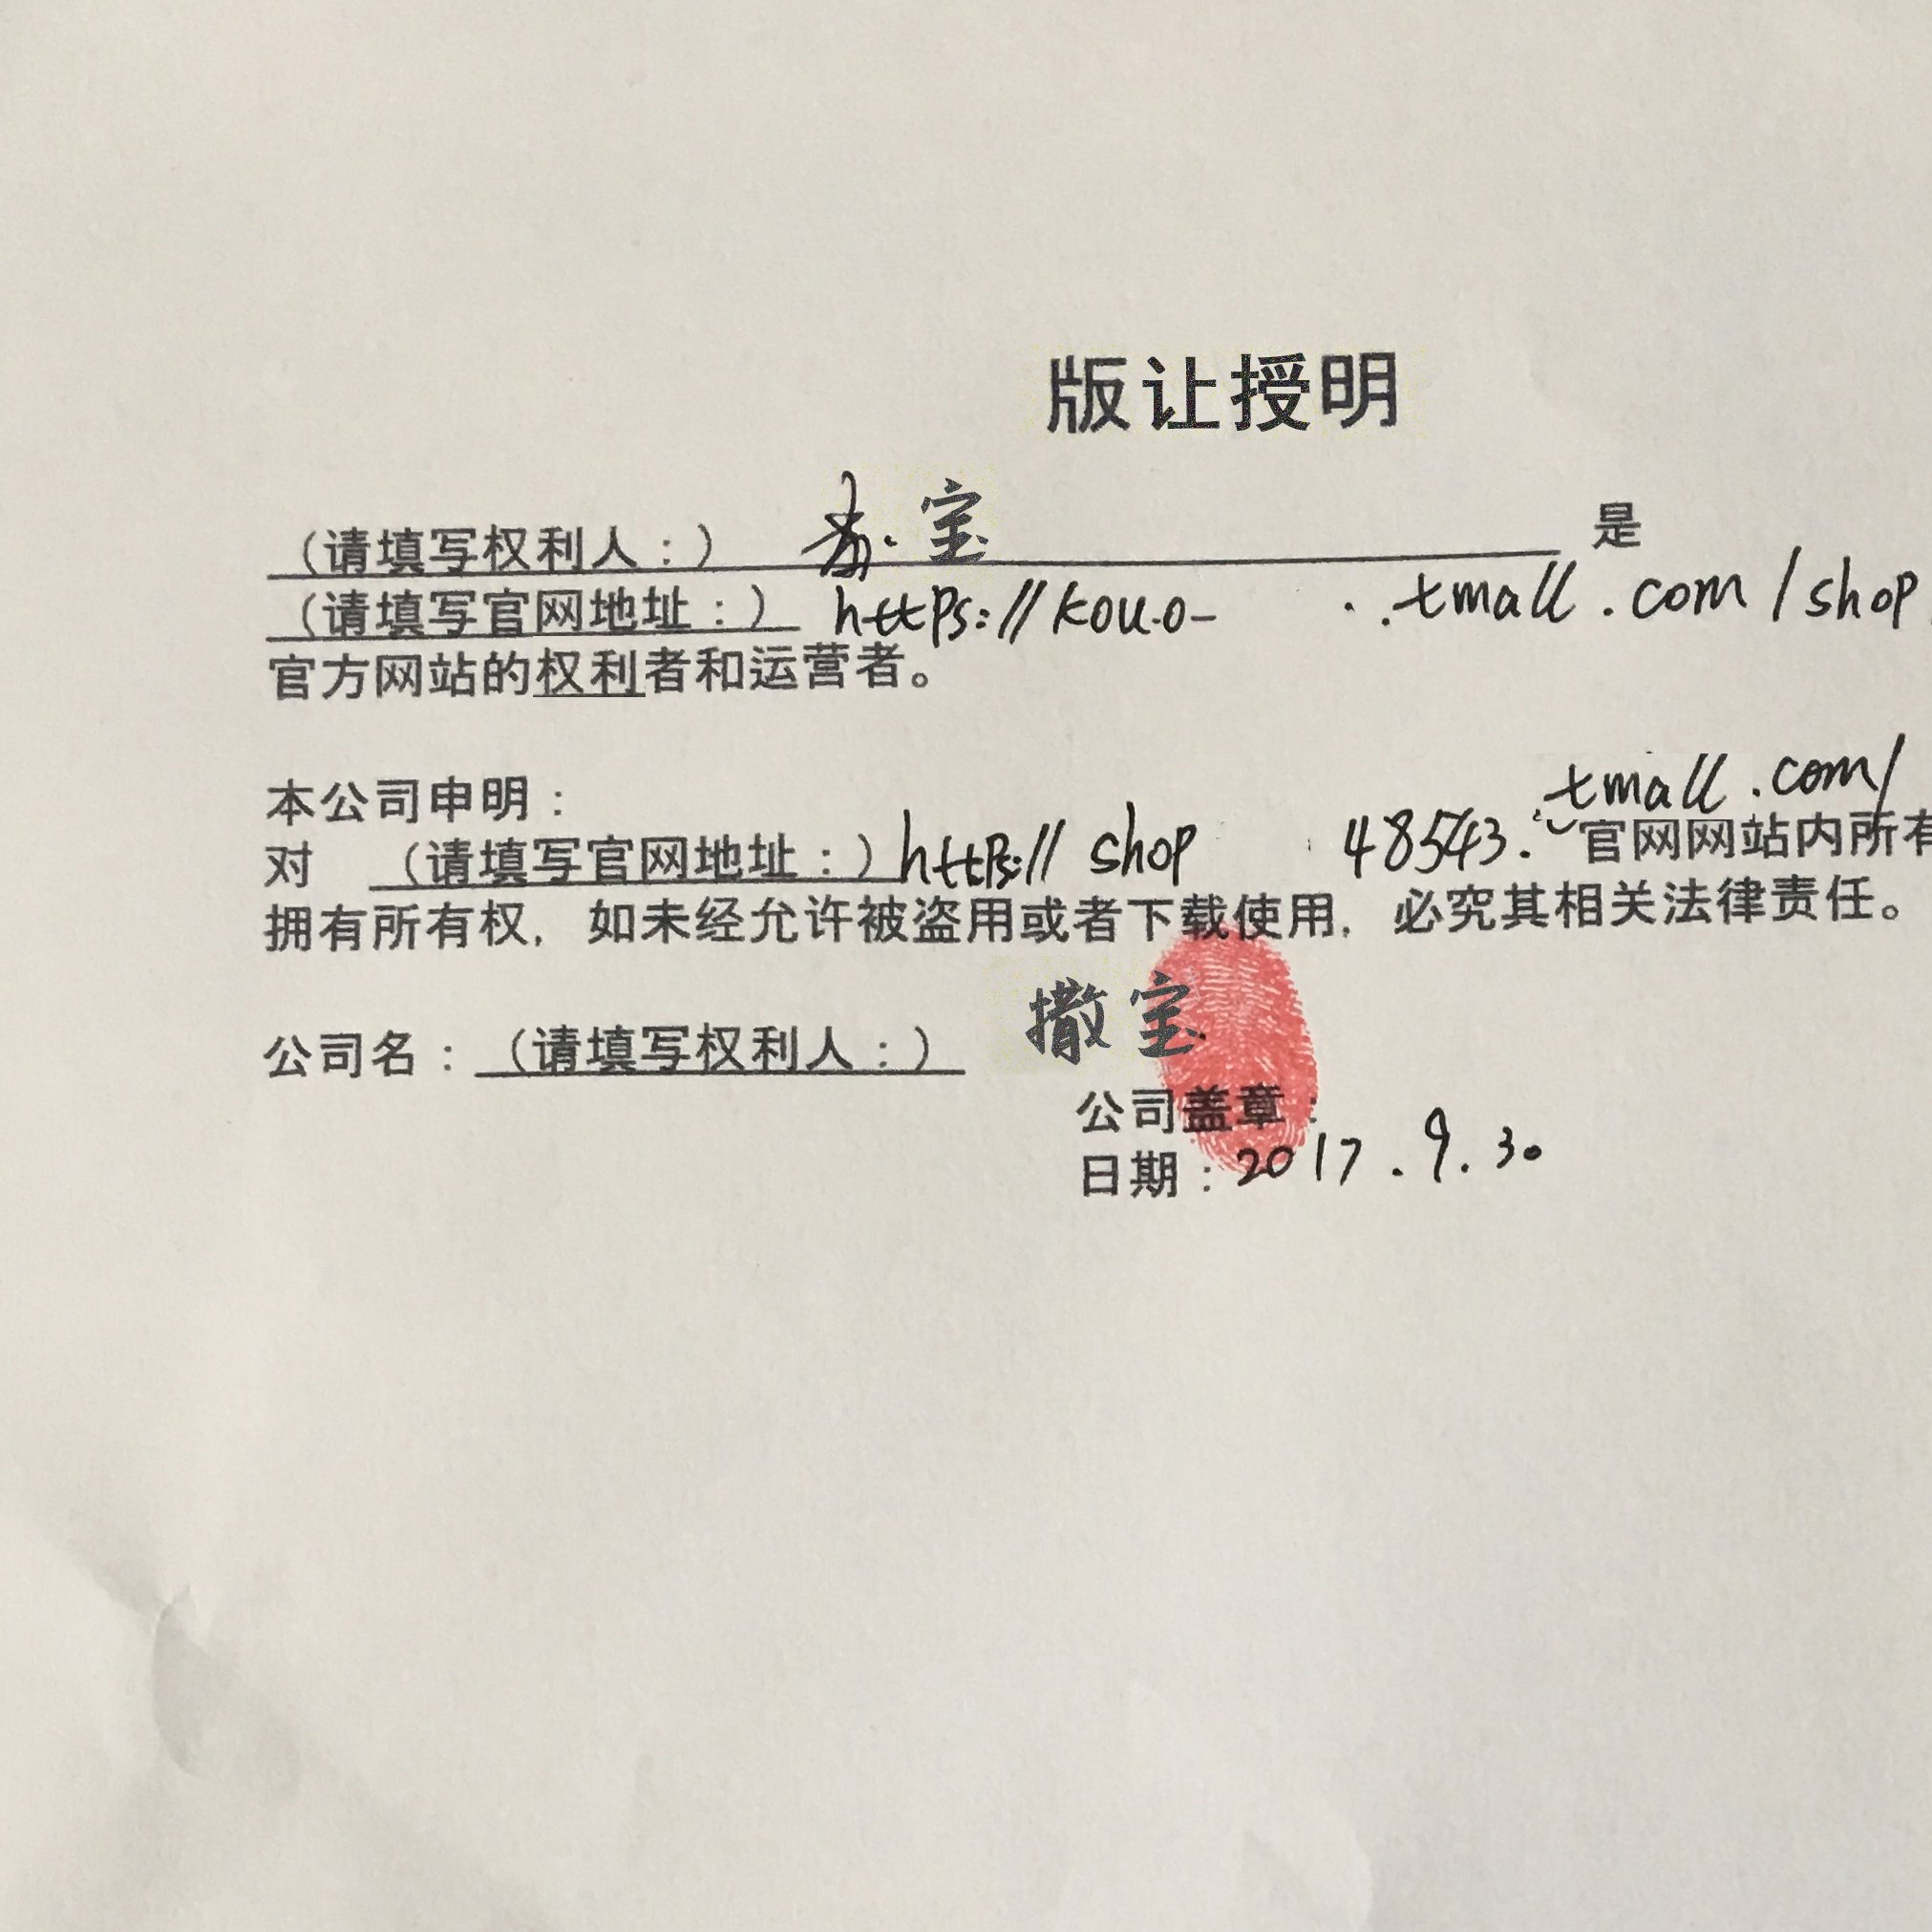 版让授明
（请填写权利人：） 宝 是
（请填写官网地址：） https://kou.o- ..tmall.com/shop
官方网站的权利者和运营者。
本公司申明：
tmall.com/
对 （请填写官网地址：）https:// shop 48543. 官网网站内所有
拥有所有权，如未经允许被盗用或者下载使用，必究其相关法律责任。
公司名：（请填写权利人：） 撒宝
公司盖章：
日期：2017.9.30